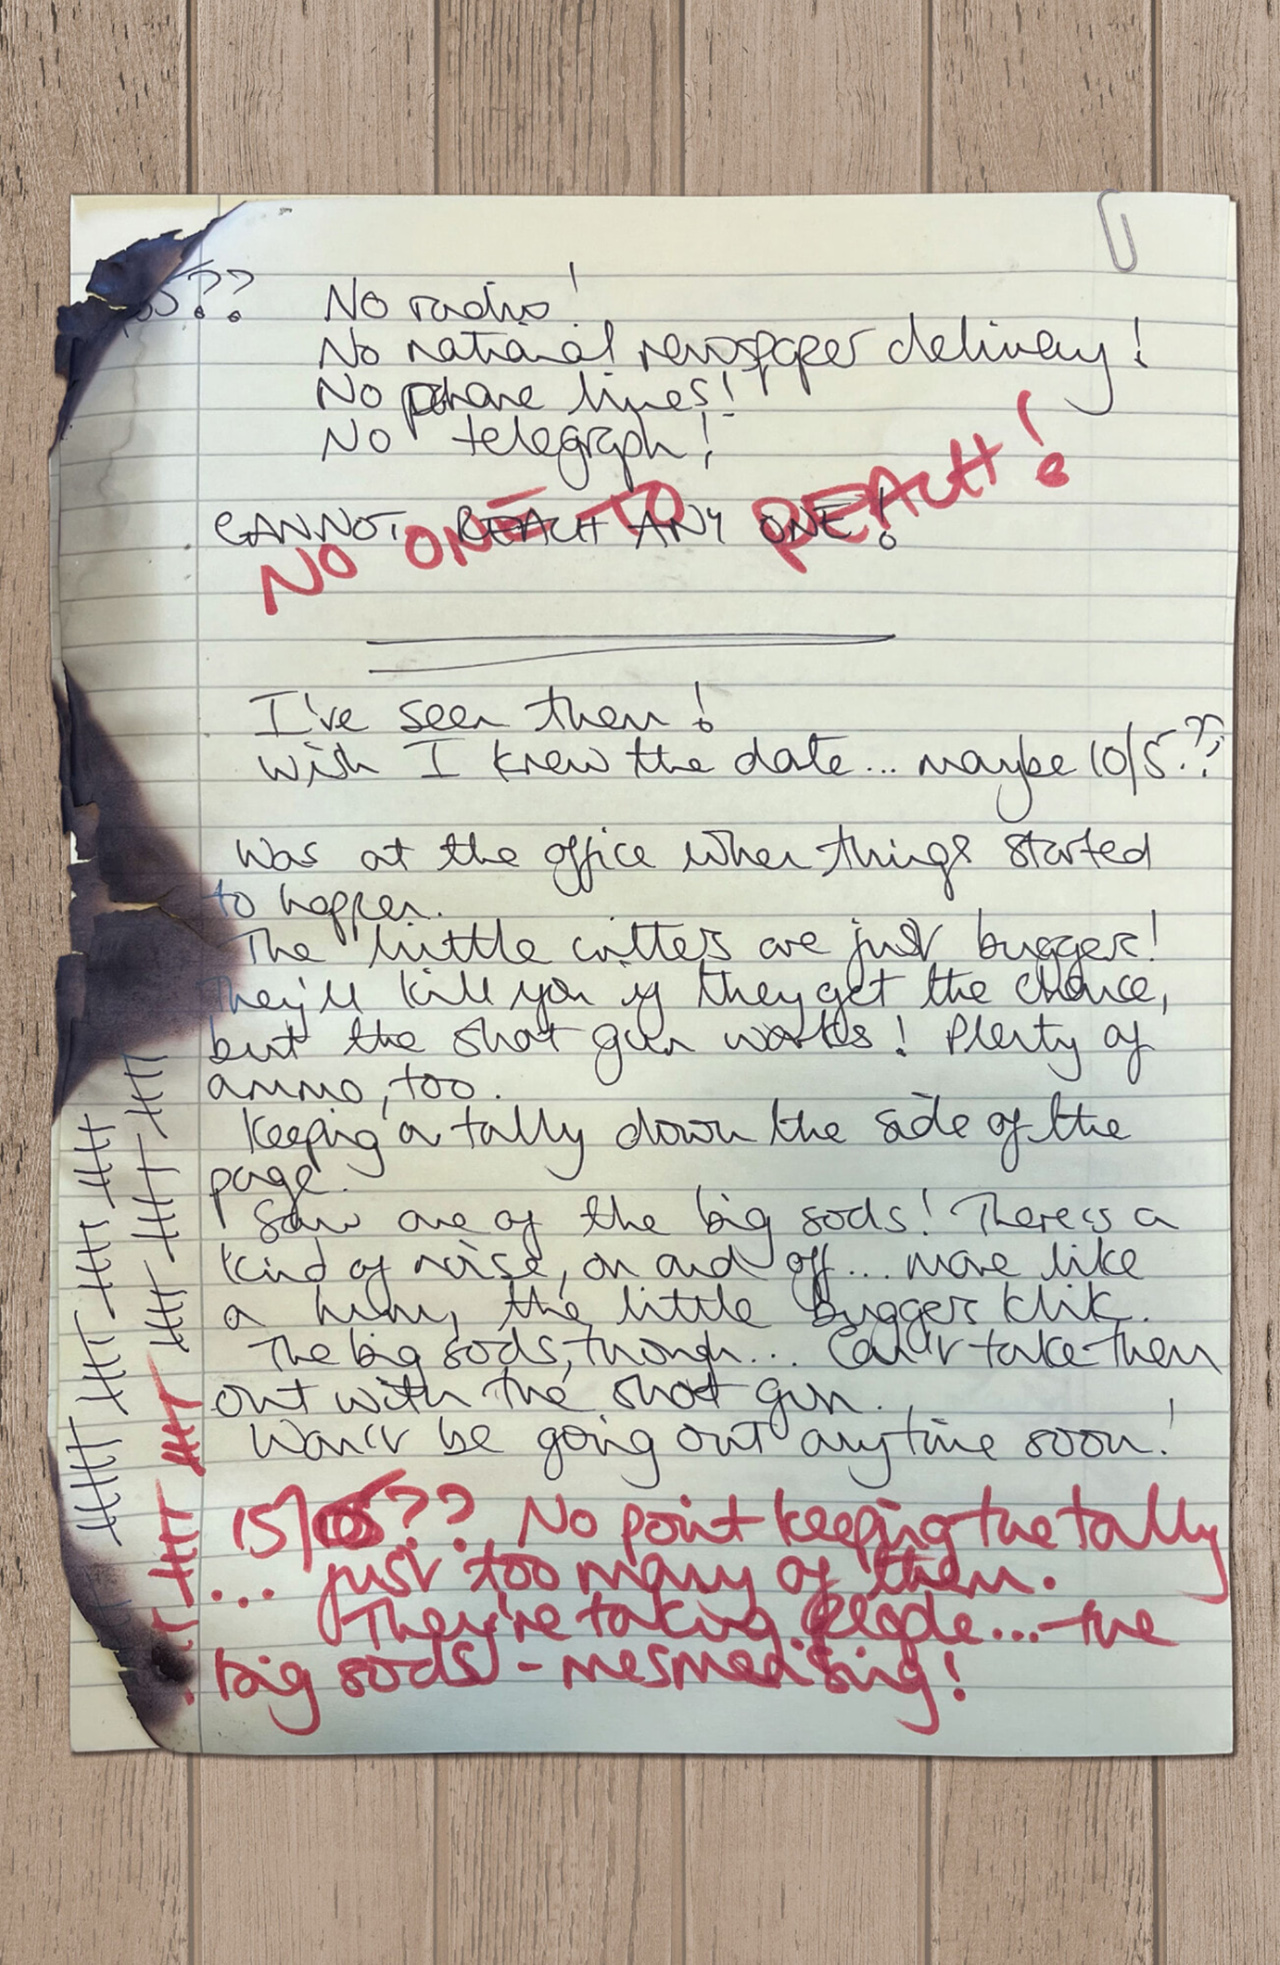 05??
No radio!
No national newspaper delivery!
No phone lines!
No telegraph!
CANNOT REACH ANY ONE!
NO ONE TO REACH!
I've seen them!
Wish I knew the date... maybe 10/5??
Was at the office when things started
to happen.
The little critters are just buggers!
They'll kill you if they get the chance,
but the shot gun works! Plenty of
ammo, too.
Keeping a tally down the side of the
page.
Saw one of the big sods! There is a
kind of noise, on and off... more like
a hum, the little buggers klik.
The big sods, though... Can't take them
out with the shot gun.
Won't be going out anytime soon!
15/05?? No point keeping the tally
... just too many of them.
They're taking people... - the
big sods - mesmerising!